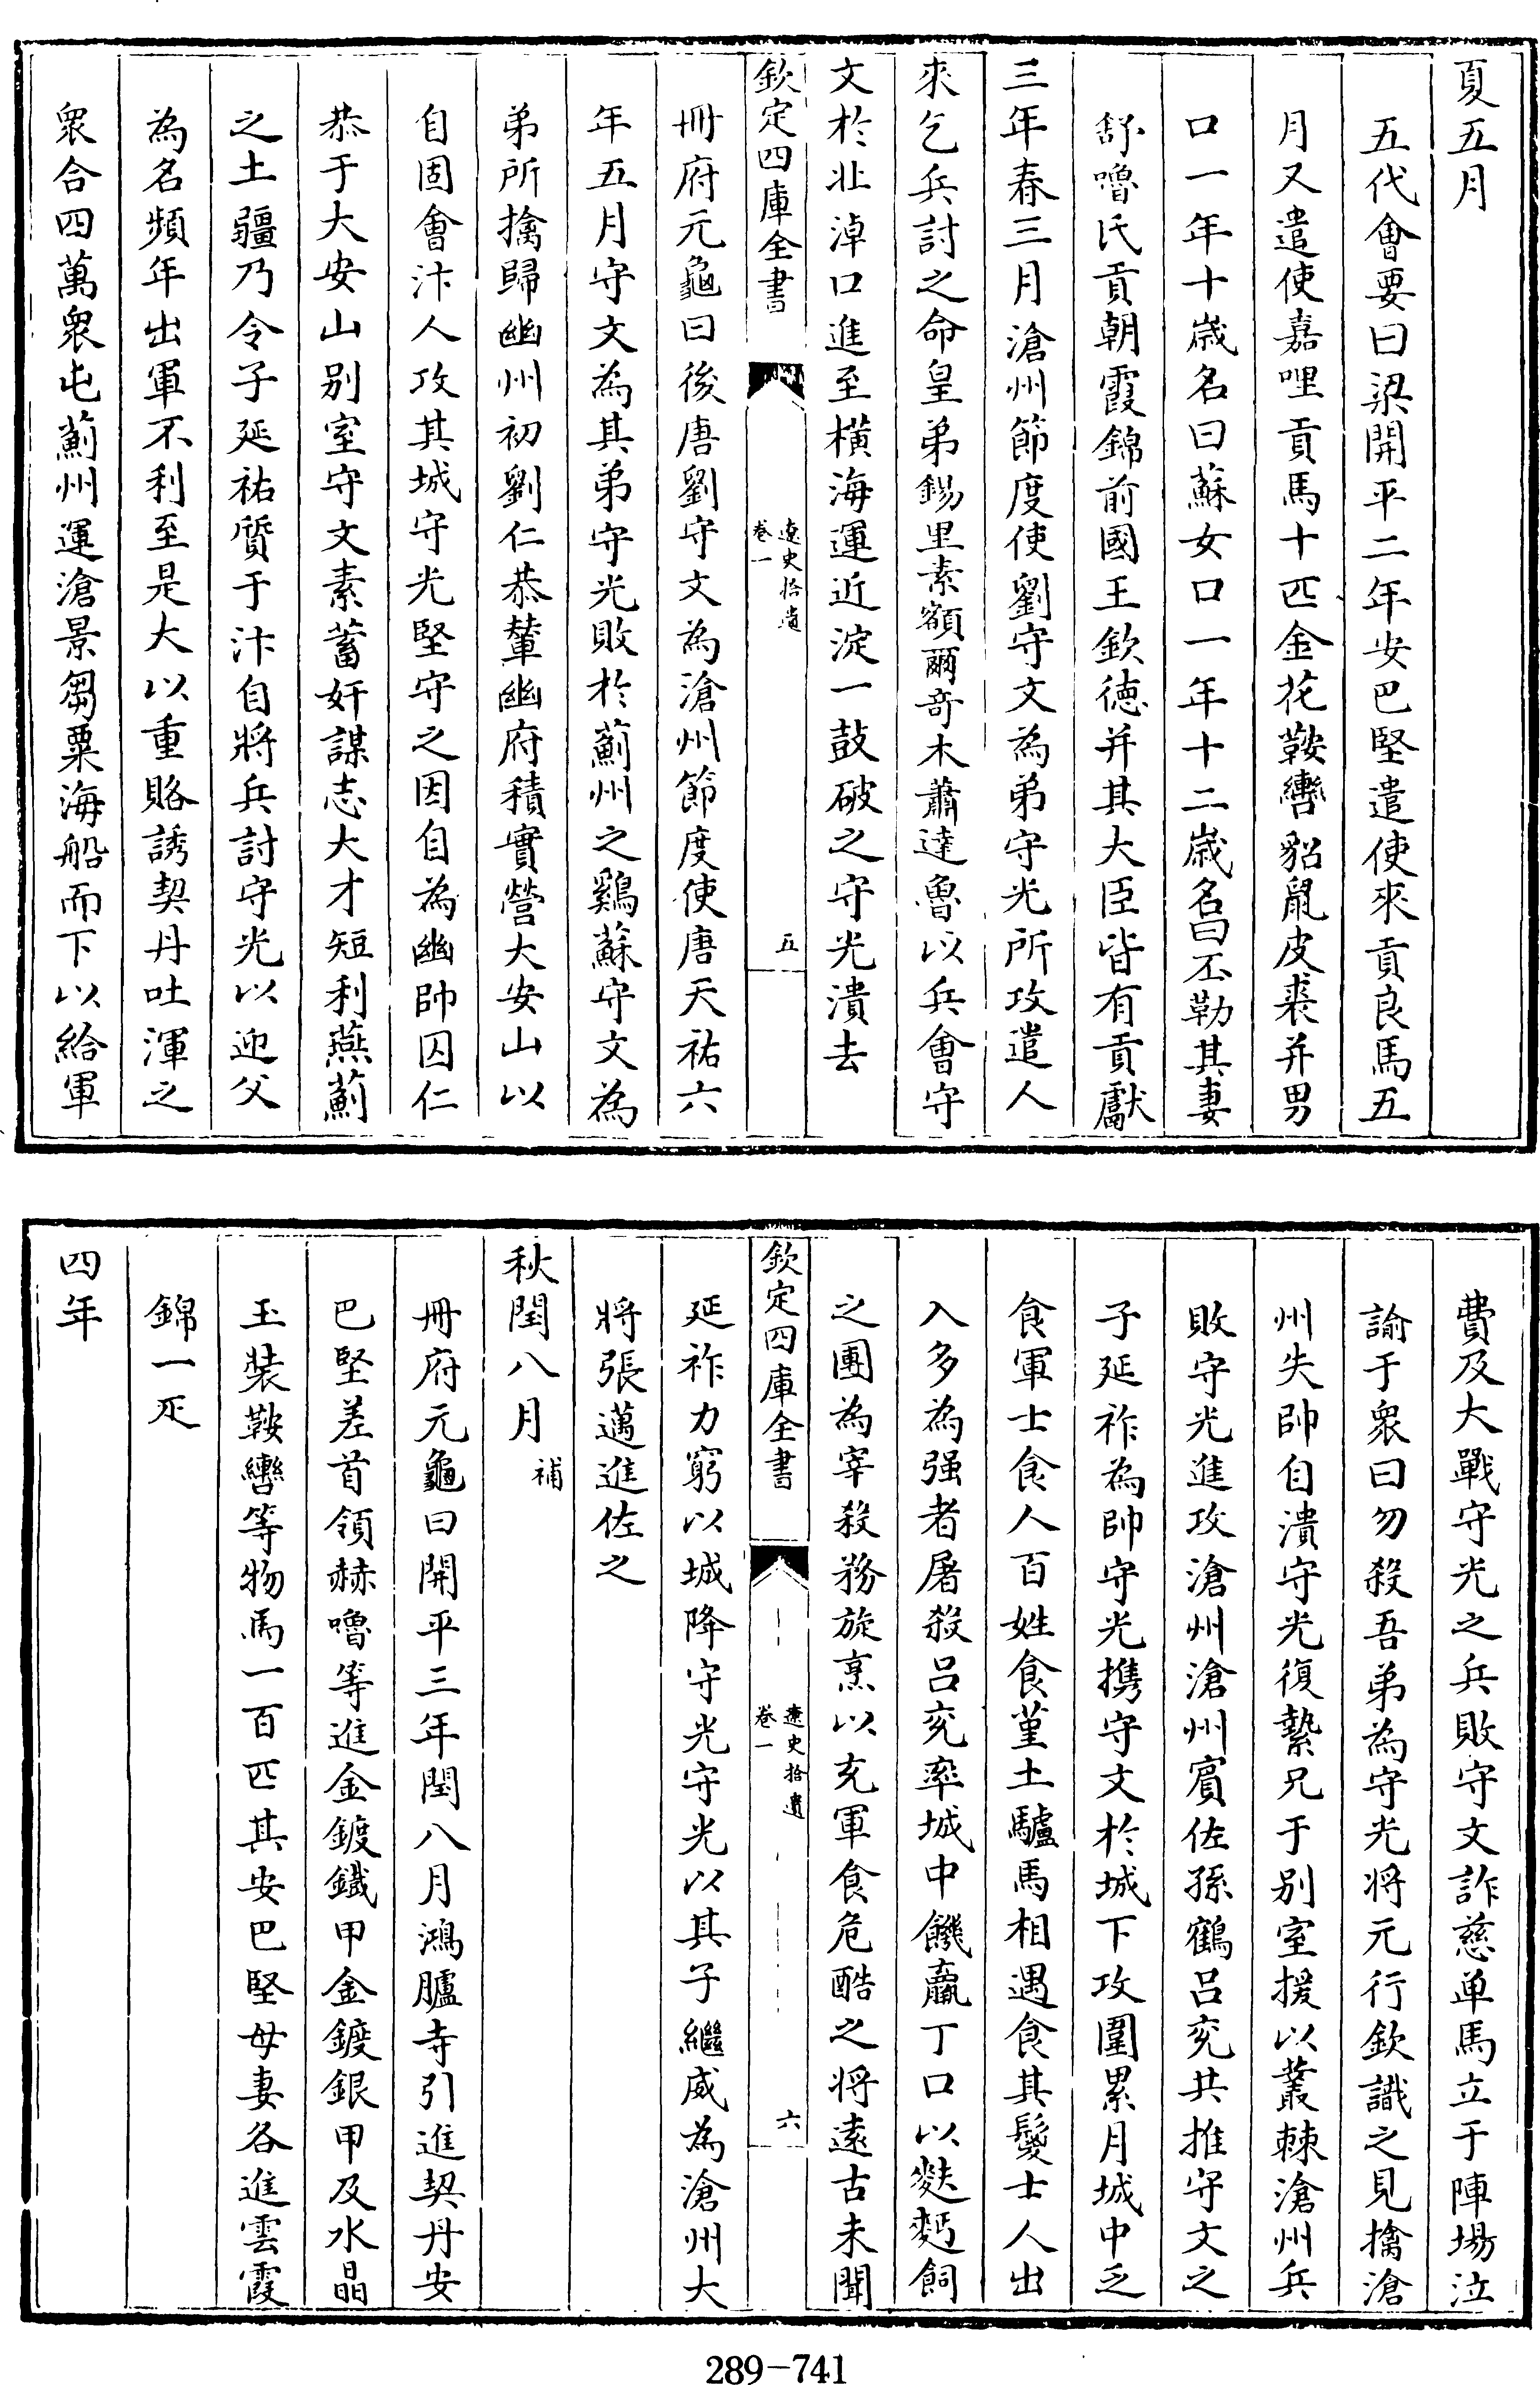 夏五月
五代會要曰梁開平二年安巴堅遣使來貢良馬五
月又遣使嘉哩貢馬十匹金花鞍轡貂鼠皮裘并男
口一年十歲名曰蘇女口一年十二歲名曰丕勒其妻
舒嚕氏貢朝霞錦前國王欽德并其大臣皆有貢獻
三年春三月滄州節度使劉守文為弟守光所攻遣人
來乞兵討之命皇弟錫里素額爾奇木蕭達魯以兵會守
文於北淖口進至橫海運近淀一鼓破之守光潰去
欽定四庫全書
遼史拾遺
卷一
五
冊府元龜曰後唐劉守文為滄州節度使唐天祐六
年五月守文為其弟守光敗於薊州之鷄蘇守文為
弟所擒歸幽州初劉仁恭輦幽府積實營大安山以
自固會汴人攻其城守光堅守之因自為幽帥囚仁
恭于大安山别室守文素蓄奸謀志大才短利燕薊
之土疆乃令子延祐質于汴自將兵討守光以迎父
為名頻年出軍不利至是大以重賂誘契丹吐渾之
衆合四萬衆屯薊州運滄景芻粟海船而下以給軍
費及大戰守光之兵敗守文詐慈单馬立于陣場泣
諭于衆曰勿殺吾弟為守光將元行欽識之見擒滄
州失帥自潰守光復縶兄于别室援以叢棘滄州兵
敗守光進攻滄州滄州賓佐孫鶴呂兖共推守文之
子延祚為帥守光携守文於城下攻圍累月城中乏
食軍士食人百姓食堇土驢馬相遇食其鬉士人出
入多為强者屠殺呂兖率城中饑羸丁口以麩麫飼
之團為宰殺務旋烹以充軍食危酷之將遠古未聞
欽定四庫全書
遼史拾遺
卷一
六
延祚力窮以城降守光守光以其子繼威為滄州大
將張邁進佐之
秋閏八月補
冊府元龜曰開平三年閏八月鴻臚寺引進契丹安
巴堅差首領赫嚕等進金鍍鐵甲金鍍銀甲及水晶
玉裝鞍轡等物馬一百匹其安巴堅母妻各進雲霞
錦一疋
四年
289-741